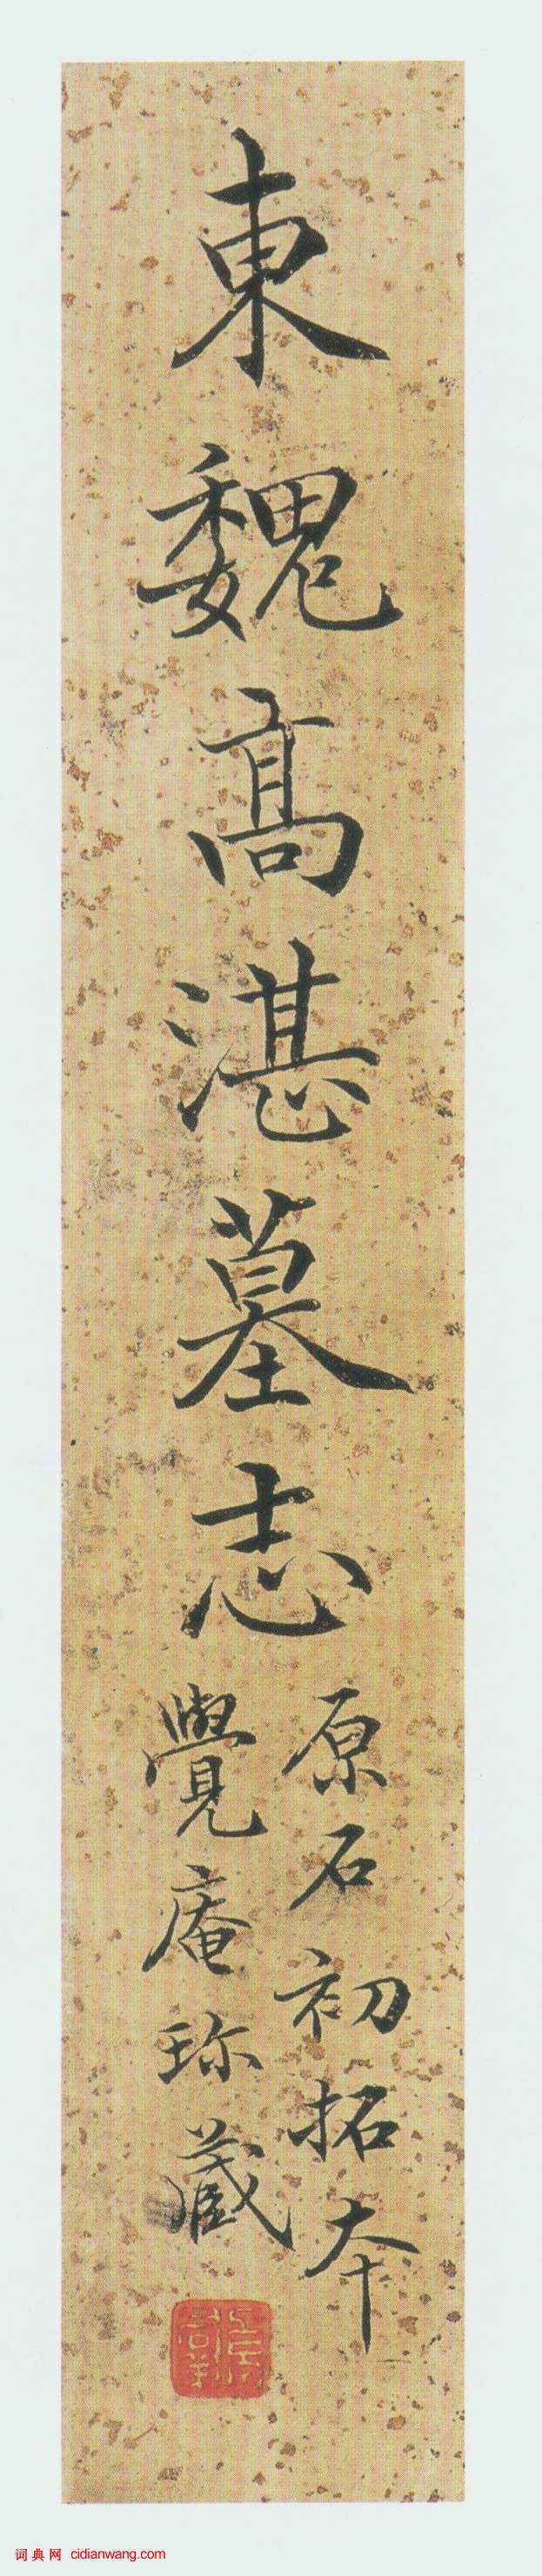 東魏高湛墓志
原石初拓本
覺庵珎藏
词典网 cidianwang.com